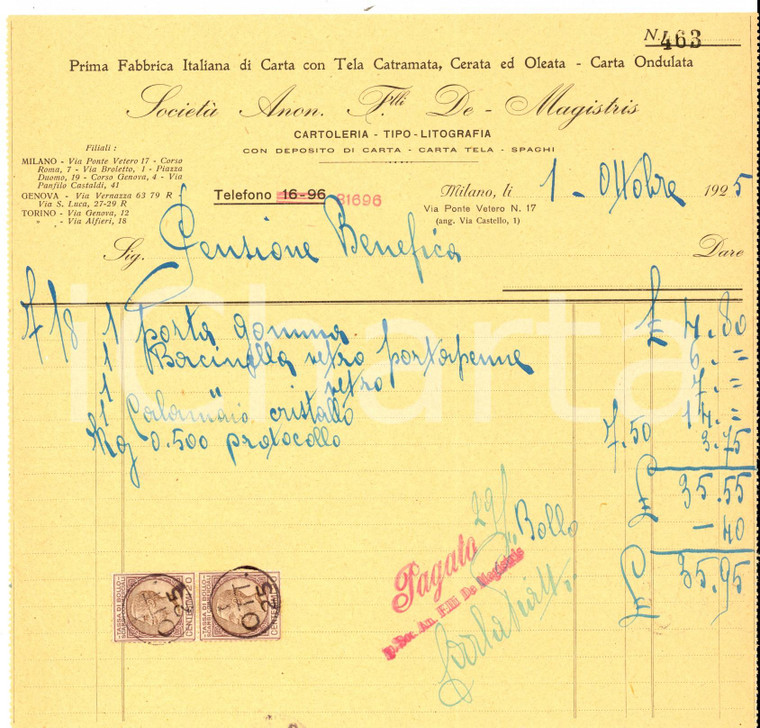 N. 463
Prima Fabbrica Italiana di Carta con Tela Catramata, Cerata ed Oleata - Carta Ondulata
Società Anon. F.lli De - Magistris
CARTOLERIA - TIPO - LITOGRAFIA
CON DEPOSITO DI CARTA - CARTA TELA - SPAGHI
Filiali :
MILANO - Via Ponte Vetero 17 - Corso
Roma, 7 - Via Broletto, 1 - Piazza
Duomo, 19 - Corso Genova, 4 - Via
Panfilo Castaldi, 41
GENOVA - Via Vernazza 63 79 R -
Via S. Luca, 27-29 R
TORINO - Via Genova, 12
" - Via Alfieri, 18
Telefono 16-96 81696
Milano, li 1 - Ottobre 1925
Via Ponte Vetero N. 17
(ang. Via Castello, 1)
Sig. Pensione Benefica Dare
1 porta gomma £ 4.80
1 Bacinella vetro portapenne 6. =
1 " vetro 7. =
1 Calamaio cristallo 14. =
Kg 0.500 protocollo 7.50 3.75
£ 35.55
Bollo - 40
£ 35.95
Pagato
p. Soc. An. F.lli De Magistris
29/
TASSA DI BOLLO
CENTESIMI
1 OTT 25
TASSA DI BOLLO
CENTESIMO
1 OTT 25
iCharta